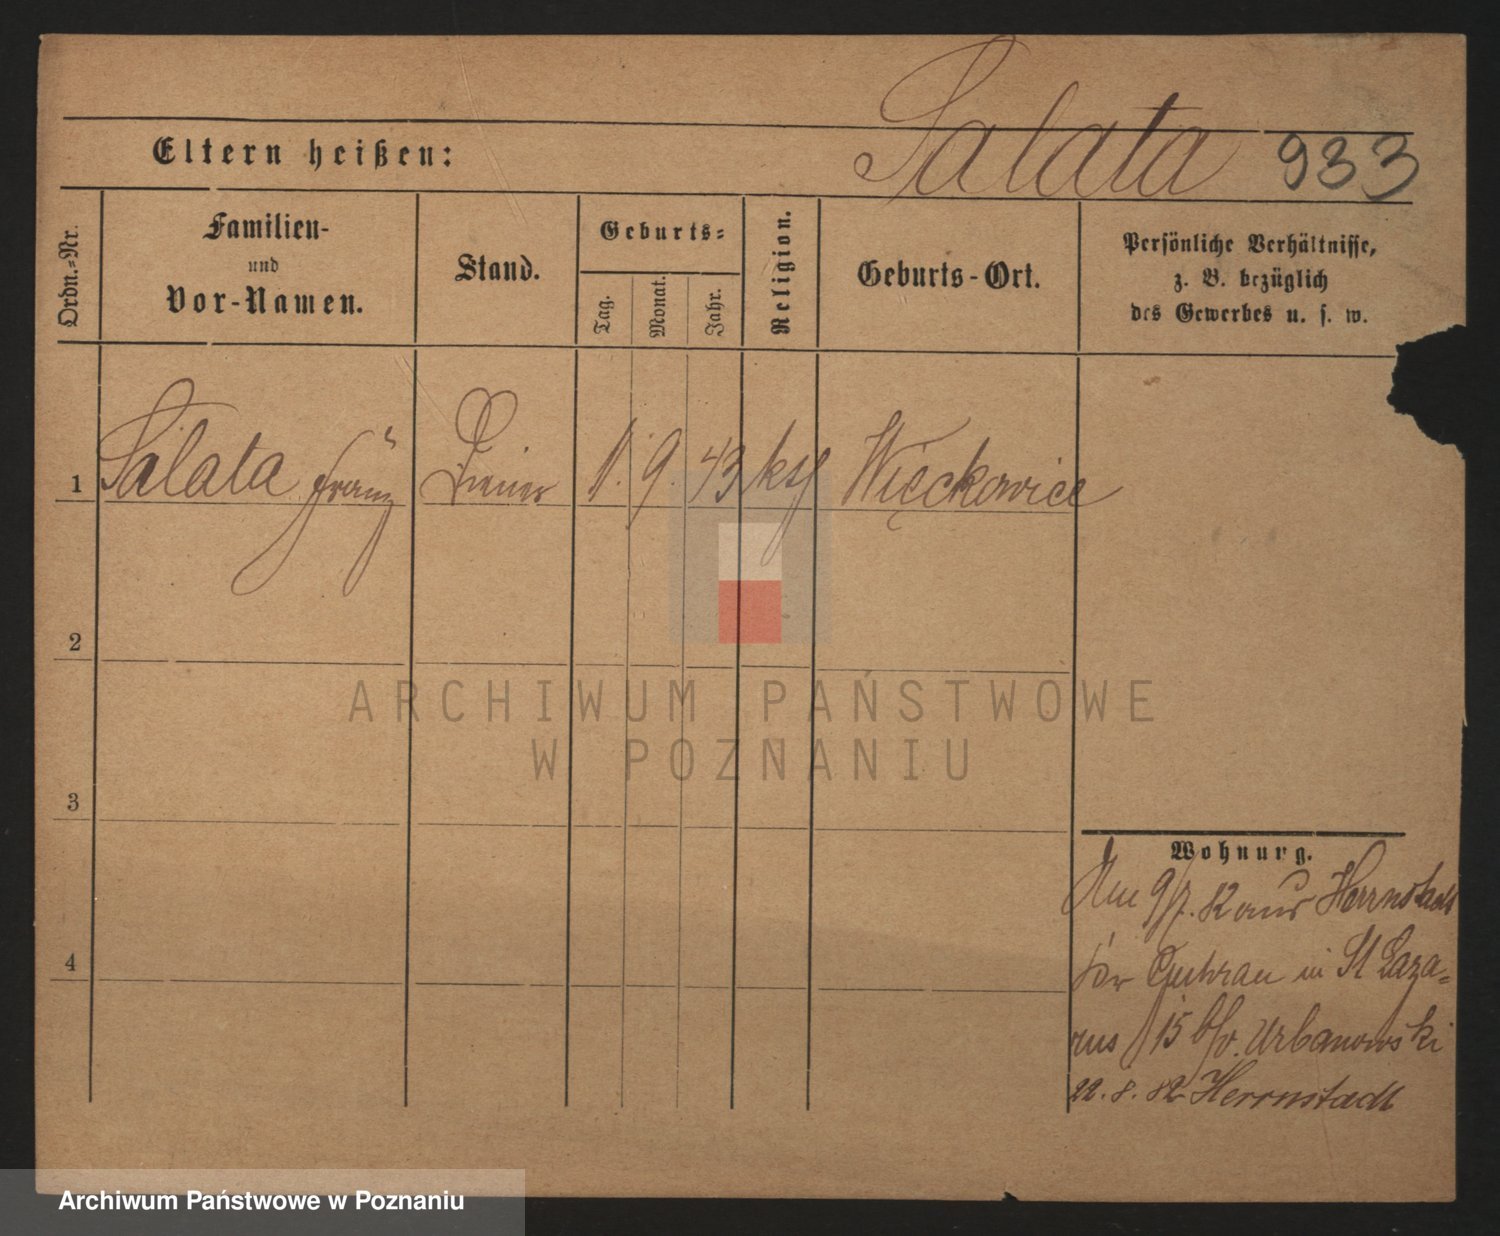 Salata 933
Eltern heißen:
Ordn.-Nr.
Familien-
und
Vor-Namen.
Stand.
Geburts-
Tag.
Monat.
Jahr.
Religion.
Geburts-Ort.
Persönliche Verhältnisse,
z. B. bezüglich
des Gewerbes u. s. w.
1 Salata Franz Diener 1. 9. 43 kth Więckowice
2
3
4
Wohnung.
Am 9/7. 82 aus Herrnstadt
Kr Guhrau in St Laza-
rus 15 b/v. Urbanowski
22. 8. 82 Herrnstadt
ARCHIWUM PAŃSTWOWE
W POZNANIU
Archiwum Państwowe w Poznaniu